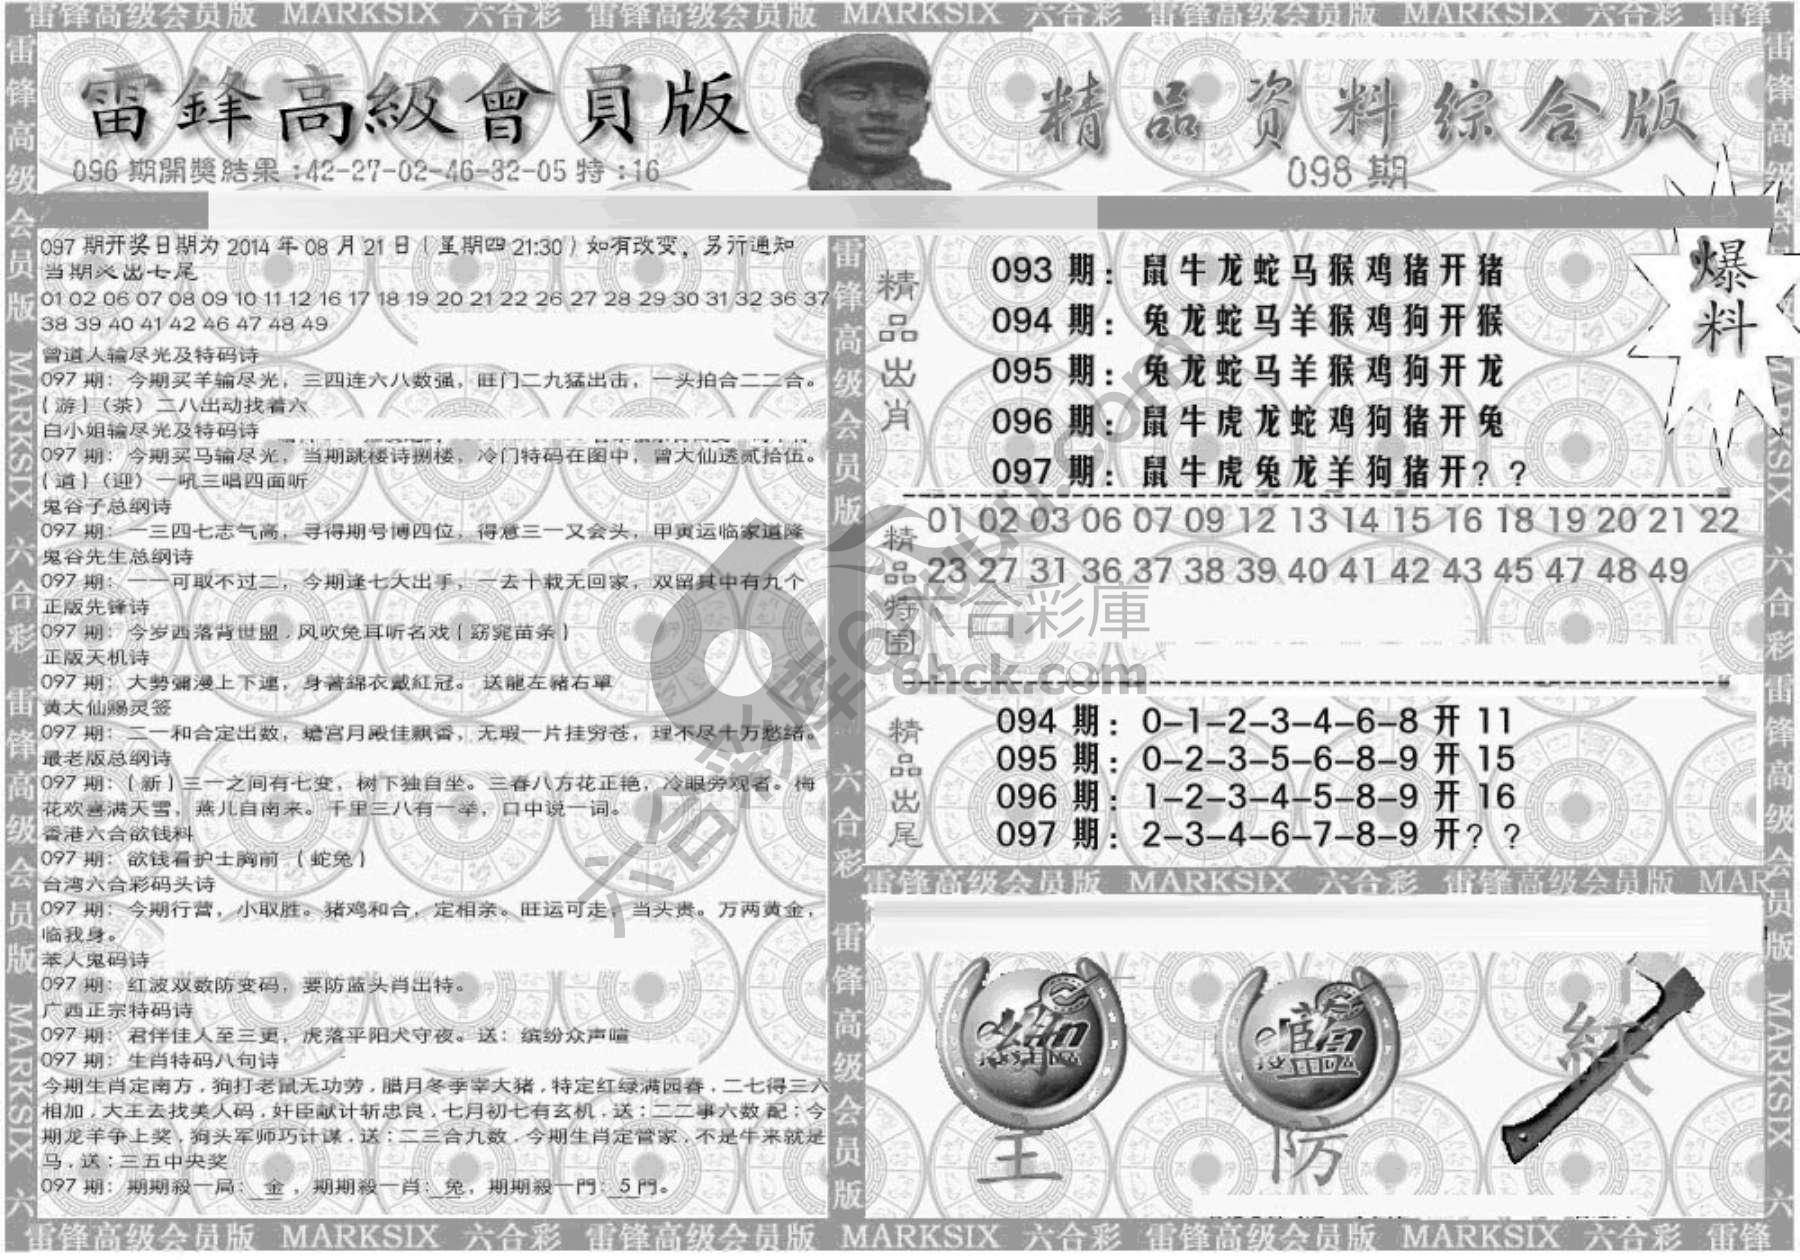 雷锋高级会员版 MARKSIX 六合彩 雷锋高级会员版 MARKSIX 六合彩 雷锋高级会员版 MARKSIX 六合彩 雷锋
雷鋒高級會員版
096 期開獎結果 :42-27-02-46-32-05 特 :16
精品资料综合版
098 期
爆料
097 期开奖日期为 2014 年 08 月 21 日 ( 星期四 21:30 ) 如有改变，另行通知
当期必出七尾
01 02 06 07 08 09 10 11 12 16 17 18 19 20 21 22 26 27 28 29 30 31 32 36 37
38 39 40 41 42 46 47 48 49
曾道人输尽光及特码诗
097 期：今期买羊输尽光，三四连六八数强，旺门二九猛出击，一头拍合二二合。
{ 游 } （茶）二八出动找着六
白小姐输尽光及特码诗
097 期：今期买马输尽光，当期跳楼诗捌楼，冷门特码在图中，曾大仙透贰拾伍。
{ 道 } （迎）一吼三唱四面听
鬼谷子总纲诗
097 期：一三四七志气高，寻得期号博四位，得意三一又会头，甲寅运临家道隆
鬼谷先生总纲诗
097 期：一一可取不过二，今期逢七大出手，一去十载无回家，双留其中有九个
正版先锋诗
097 期：今岁西落背世盟．风吹兔耳听名戏 { 窈窕苗条 }
正版天机诗
097 期：大勢彌漫上下連，身著錦衣戴紅冠。送龍左豬右單
黄大仙赐灵签
097 期：二一和合定出数，蟾宫月殿佳飘香，无瑕一片挂穷苍，理不尽千万愁绪。
最老版总纲诗
097 期：{ 新 } 三一之间有七变，树下独自坐。三春八方花正艳，冷眼旁观者。梅
花欢喜满天雪，燕儿自南来。千里三八有一举，口中说一词。
香港六合欲钱料
097 期：欲钱看护士胸前 ｛蛇兔｝
台湾六合彩码头诗
097 期：今期行营，小取胜。猪鸡和合，定相亲。旺运可走，当头贵。万两黄金，
临我身。
苯人鬼码诗
097 期：红波双数防变码，要防蓝头肖出特。
广西正宗特码诗
097 期：君伴佳人至三更，虎落平阳犬守夜。送：缤纷众声喧
097 期：生肖特码八句诗
今期生肖定南方．狗打老鼠无功劳．腊月冬季宰大猪．特定红绿满园春．二七得三六
相加．大王去找美人码．奸臣献计斩忠良．七月初七有玄机．送：二二事六数 配：今
期龙羊争上奖．狗头军师巧计谋．送：二三合九数．今期生肖定管家．不是牛来就是
马．送：三五中央奖
097 期：期期殺一局：金，期期殺一肖：兔，期期殺一門：5 門。
精品出肖
093 期：鼠牛龙蛇马猴鸡猪开猪
094 期：兔龙蛇马羊猴鸡狗开猴
095 期：兔龙蛇马羊猴鸡狗开龙
096 期：鼠牛虎龙蛇鸡狗猪开兔
097 期：鼠牛虎兔龙羊狗猪开? ?
精品特围
01 02 03 06 07 09 12 13 14 15 16 18 19 20 21 22
23 27 31 36 37 38 39 40 41 42 43 45 47 48 49
六合彩庫
6hck.com
精品出尾
094 期：0-1-2-3-4-6-8 开 11
095 期：0-2-3-5-6-8-9 开 15
096 期：1-2-3-4-5-8-9 开 16
097 期：2-3-4-6-7-8-9 开? ?
雷锋高级会员版 MARKSIX 六合彩 雷锋高级会员版 MAR
藍
紅
主
防
雷锋高级会员版 MARKSIX 六合彩 雷锋高级会员版 MARKSIX 六合彩 雷锋高级会员版 MARKSIX 六合彩 雷锋